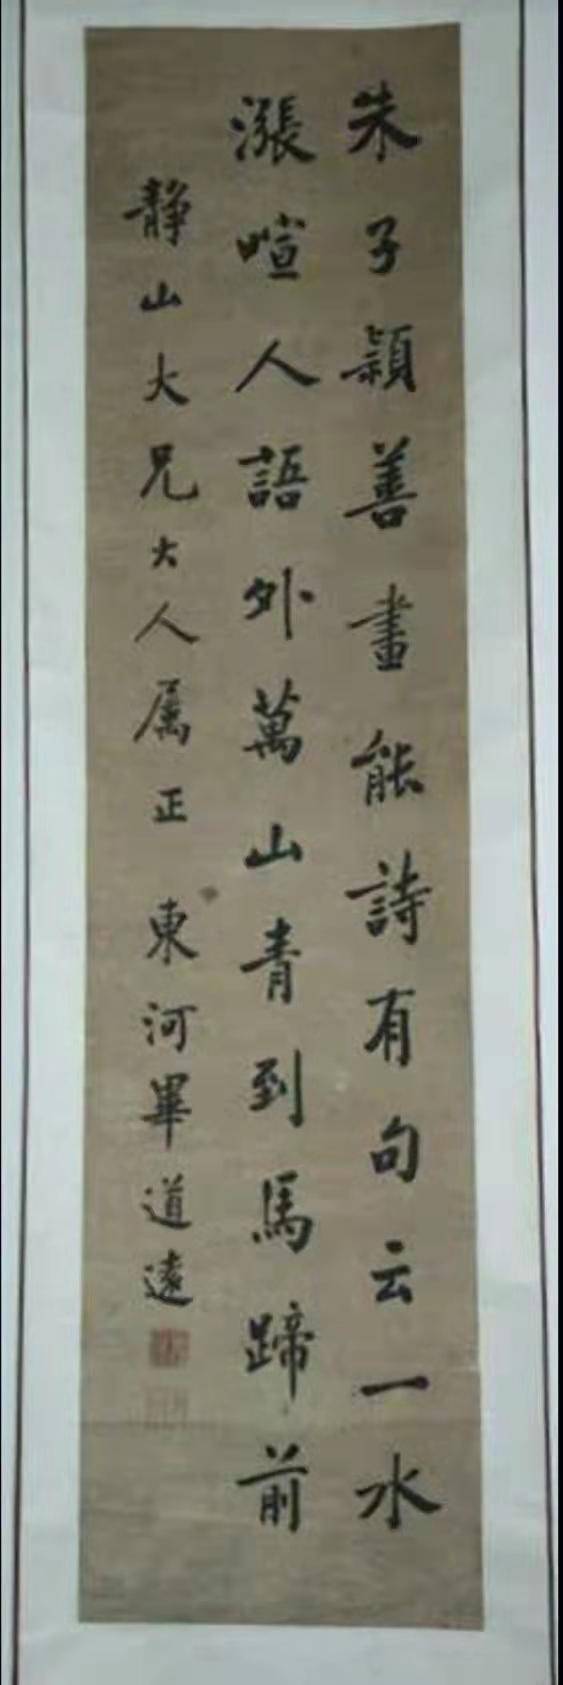 朱子頴善畫能詩有句云一水
漲喧人語外萬山青到馬蹄前
靜山大兄大人属正 東河畢道遠